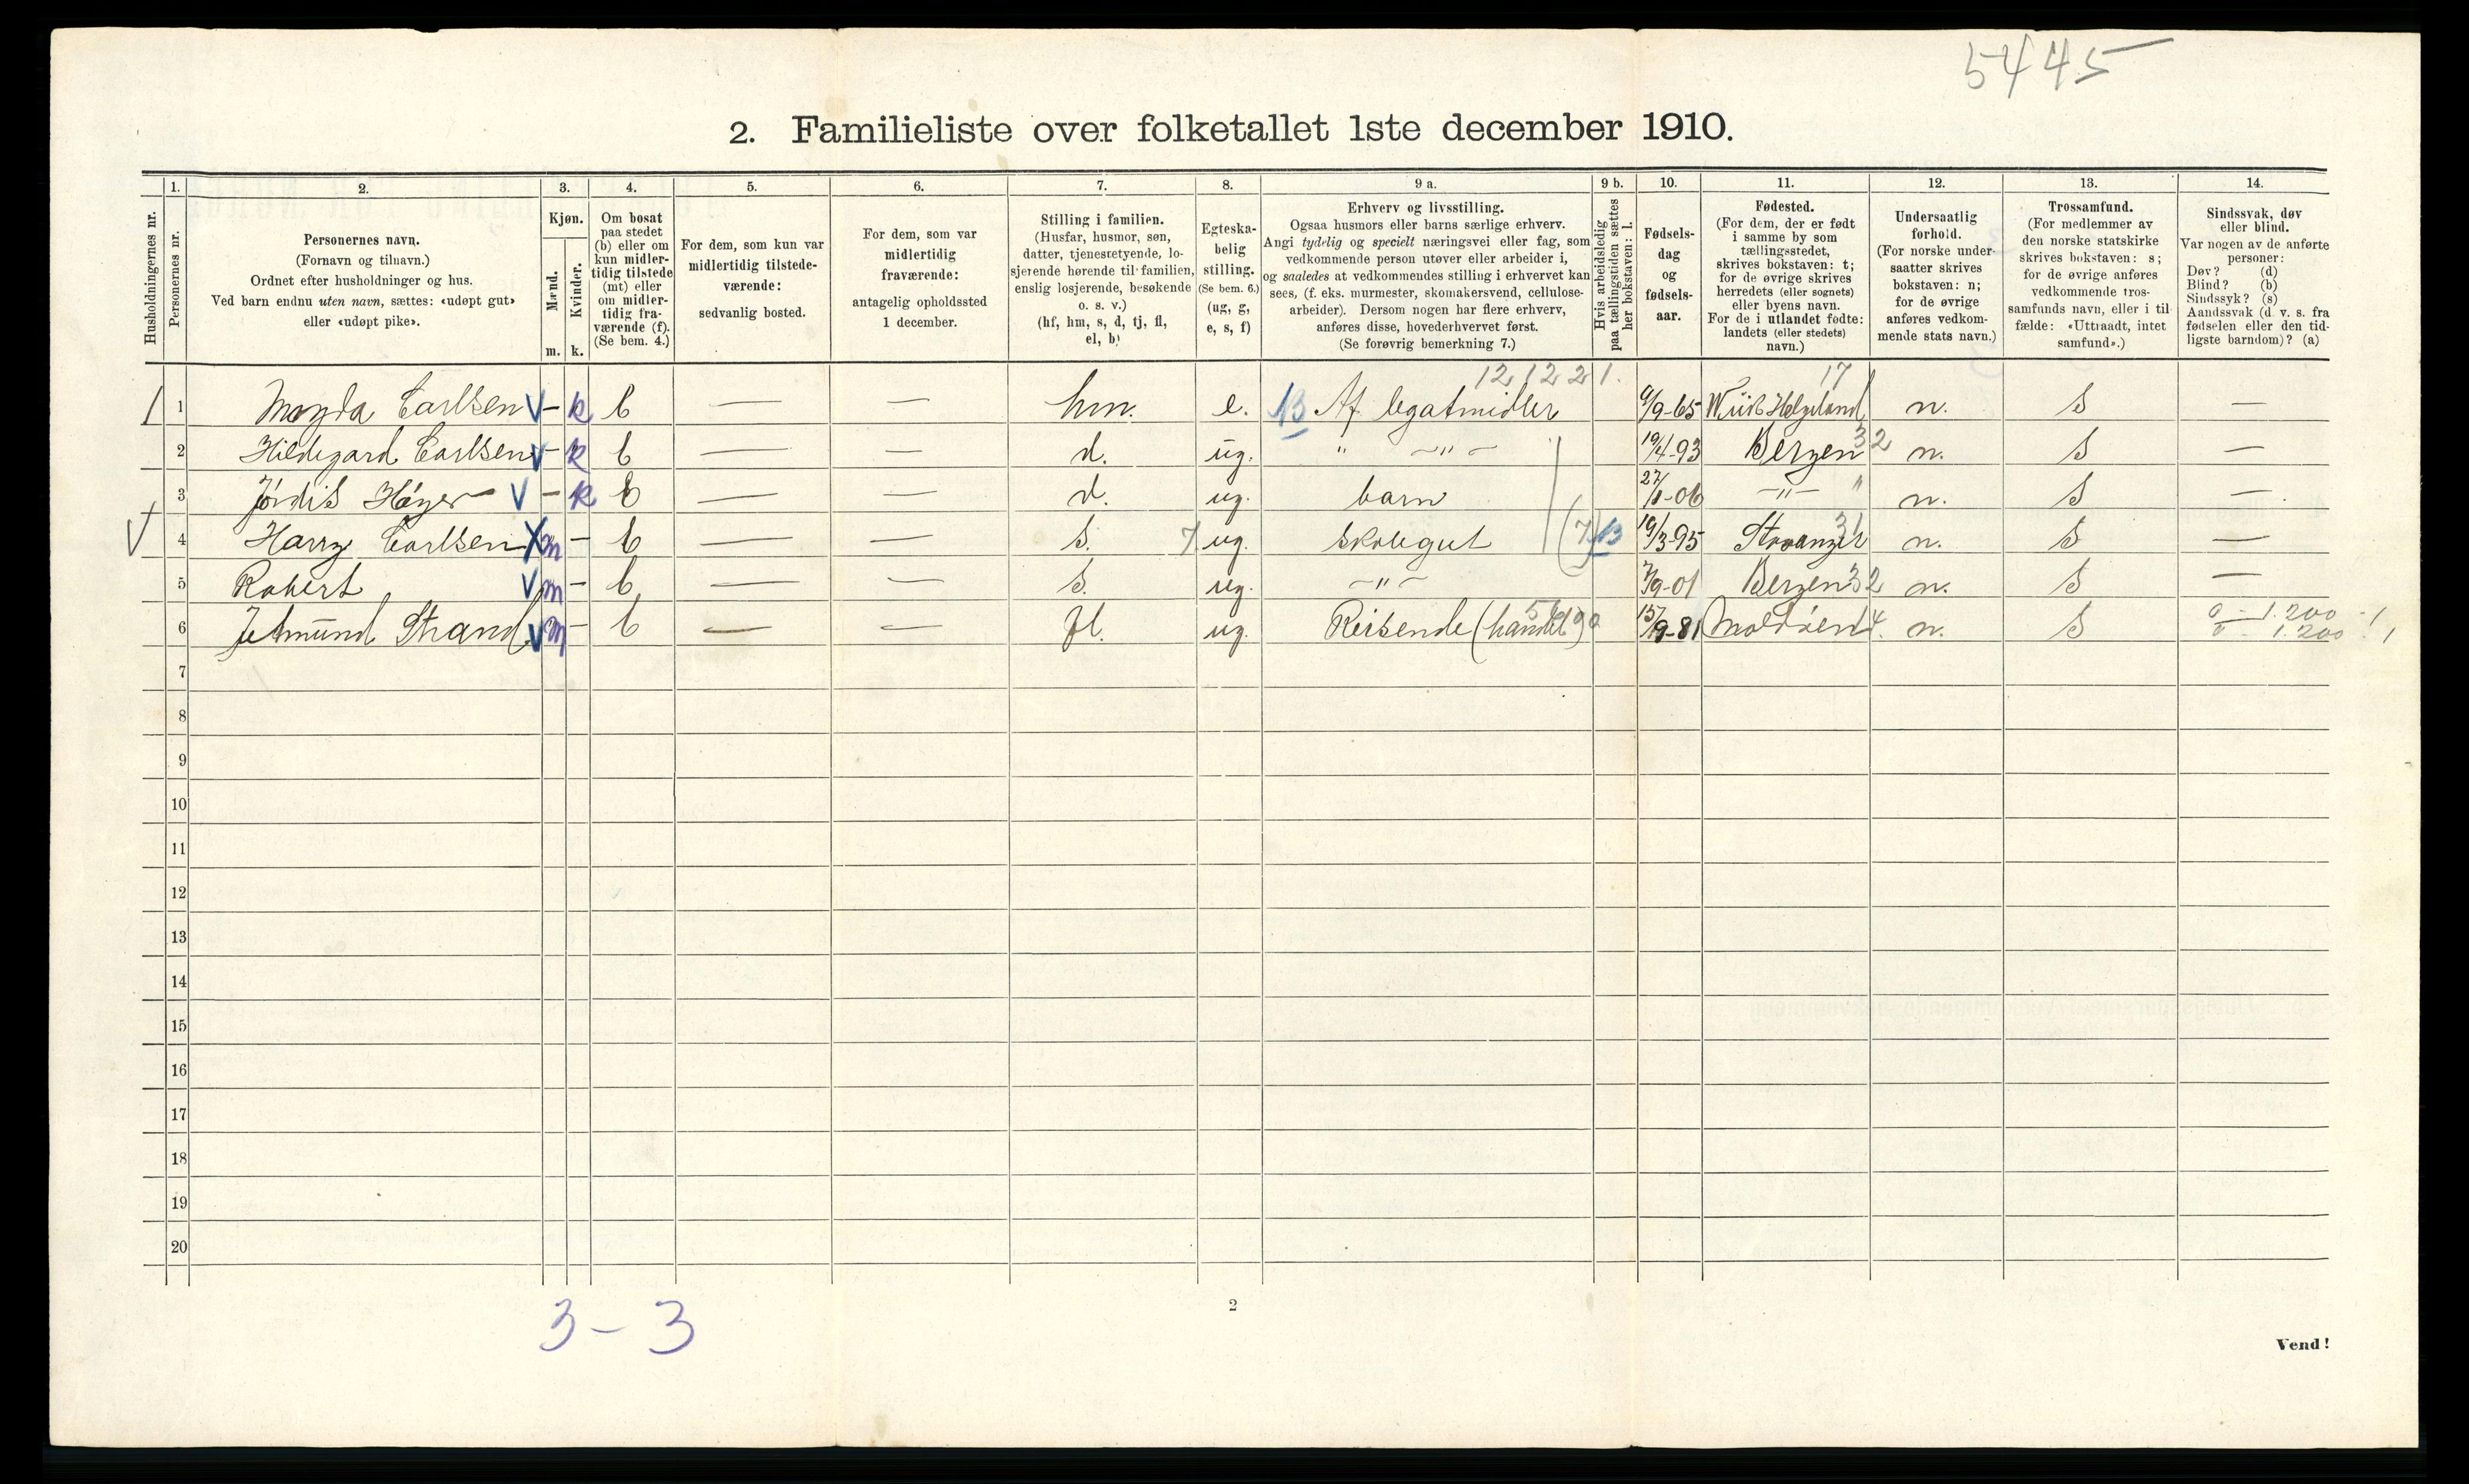 5445
2. Familieliste over folketallet 1ste december 1910.
1. 2. 3. 4. 5. 6. 7. 8. 9 a. 9 b. 10. 11. 12. 13. 14.
Husholdningernes nr.
Personernes nr.
Personernes navn.
(Fornavn og tilnavn.)
Ordnet efter husholdninger og hus.
Ved barn endnu uten navn, sættes: «udøpt gut»
eller «udøpt pike».
Kjøn.
Mænd.
Kvinder.
m. k.
Om bosat
paa stedet
(b) eller om
kun midler-
tidig tilstede
(mt) eller
om midler-
tidig fra-
værende (f).
(Se bem. 4.)
For dem, som kun var
midlertidig tilstede-
værende:
sedvanlig bosted.
For dem, som var
midlertidig
fraværende:
antagelig opholdssted
1 december.
Stilling i familien.
(Husfar, husmor, søn,
datter, tjenestetyende, lo-
sjerende hørende til familien,
enslig losjerende, besøkende
o. s. v.)
(hf, hm, s, d, tj, fl,
el, b)
Egteska-
belig
stilling.
(Se bem. 6.)
(ug, g,
e, s, f)
Erhverv og livsstilling.
Ogsaa husmors eller barns særlige erhverv.
Angi tydelig og specielt næringsvei eller fag, som
vedkommende person utøver eller arbeider i,
og saaledes at vedkommendes stilling i erhvervet kan
sees, (f. eks. murmester, skomakersvend, cellulose-
arbeider). Dersom nogen har flere erhverv,
anføres disse, hovederhvervet først.
(Se forøvrig bemerkning 7.)
Hvis arbeidsledig
paa tællingstiden sættes
her bokstaven: l.
Fødsels-
dag
og
fødsels-
aar.
Fødested.
(For dem, der er født
i samme by som
tællingsstedet,
skrives bokstaven: t;
for de øvrige skrives
herredets (eller sognets)
eller byens navn.
For de i utlandet fødte:
landets (eller stedets)
navn.)
Undersaatlig
forhold.
(For norske under-
saatter skrives
bokstaven: n;
for de øvrige
anføres vedkom-
mende stats navn.)
Trossamfund.
(For medlemmer av
den norske statskirke
skrives bokstaven: s;
for de øvrige anføres
vedkommende tros-
samfunds navn, eller i til-
fælde: «Uttraadt, intet
samfund».)
Sindssvak, døv
eller blind.
Var nogen av de anførte
personer:
Døv? (d)
Blind? (b)
Sindssyk? (s)
Aandssvak (d. v. s. fra
fødselen eller den tid-
ligste barndom)? (a)
12 12 2 1. 17
1 1 Magda Carlsen V – k b — — hm. e. 13 Af legatmidler /9-65 Helgeland n. S —
2 Hildegard Carlsen V – k b — — d. ug. " —"— 19/4-93 Bergen 32 n. S —
3 Jórdis Höyer V – k b — — d. ug. barn 27/1-06 —"— " n. S —
V 4 Harry Carlsen X m – b — — S. 7 ug. Skolegut (7) 13 19/3-95 Stavanger 31 n. S —
5 Robert V m – b — — S. ug. —"— 7/9-01 Bergen 32 n. S —
6 Jetmund Strand V m – b — — fl. ug. Reisende (handel) 15/9-81 Moldöen 14. n. S 1.200
1.200
7
8
9
10
11
12
13
14
15
16
17
18
19
20
3 – 3
2
Vend!